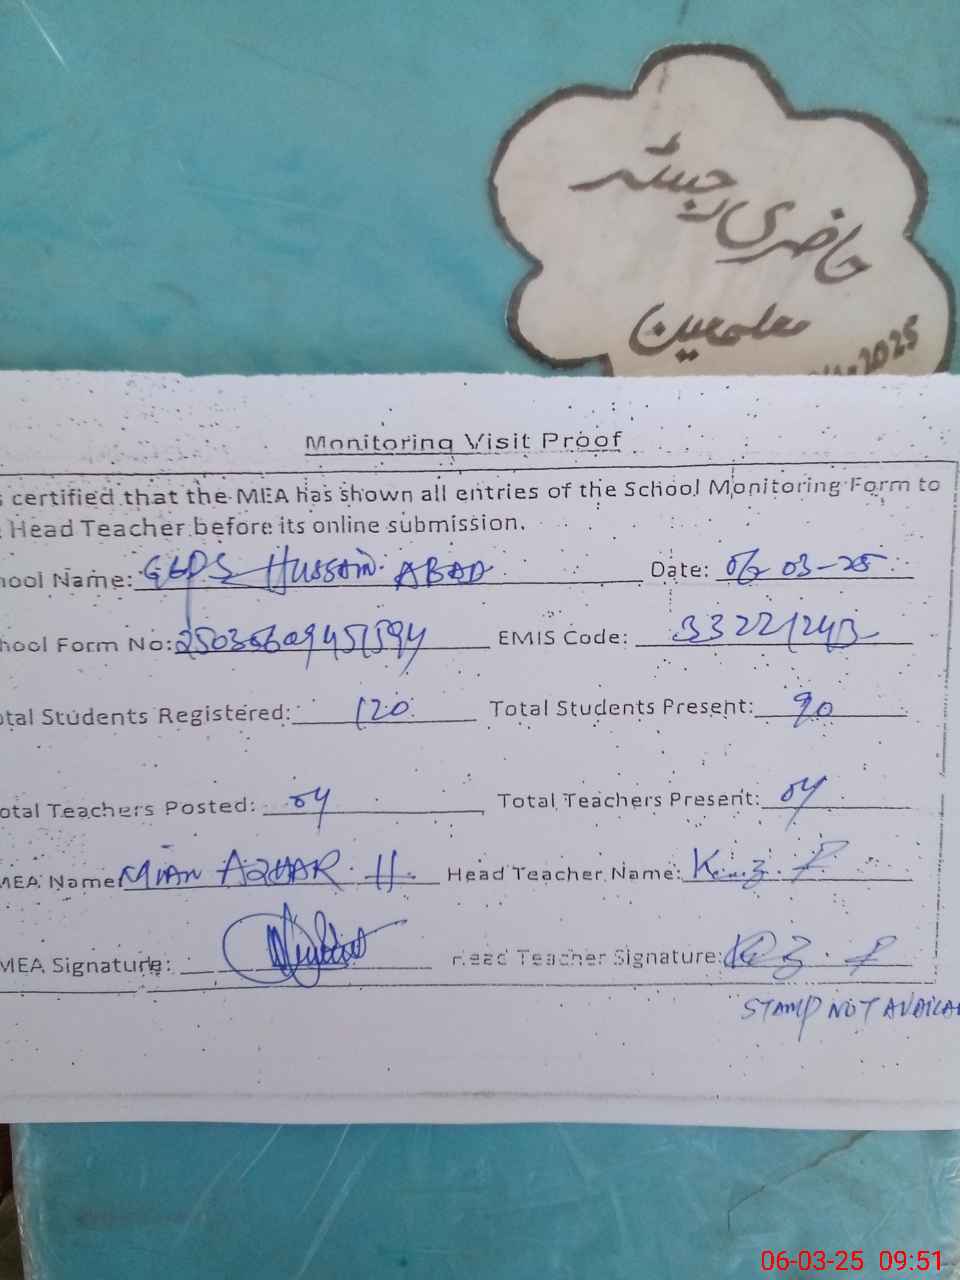 حاضری رجسٹر
معلمین
2025
Monitoring Visit Proof
certified that the MEA has shown all entries of the School Monitoring Form to
Head Teacher before its online submission.
hool Name: GGPS HUSSAIN ABAD Date: 06-03-25
hool Form No: EMIS Code: 33221243
otal Students Registered: 120 Total Students Present: 90
otal Teachers Posted: 04 Total Teachers Present: 04
MEA Name MIAN AZHAR H. Head Teacher Name:
MEA Signature: Head Teacher Signature:
STAMP NOT AVAILA
06-03-25 09:51